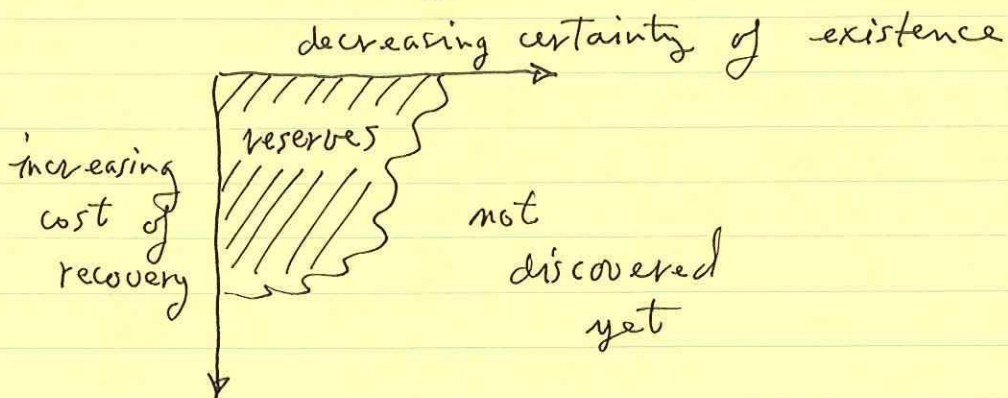 decreasing certainty of existence
reserves
increasing
cost of
recovery
not
discovered
yet